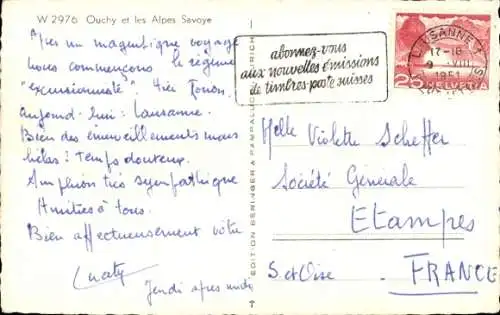 W 2976 Ouchy et les Alpes Savoye
Après un magnifique voyage
nous commençons le régime
"excursionniste" Hier Thonon.
Aujourd-hui: Lausanne.
Bien des émerveillements mais
hélas! Temps douteux.
Amphion très sympathique
Amitiés à tous.
Bien affectueusement vôtre
Jeudi après midi
EDITION BERINGER & PAMPALUCHI ZURICH
abonnez-vous
aux nouvelles émissions
de timbres-poste suisses
LAUSANNE 1
17-18
9.VIII
1951
25 HELVETIA
Melle Violette Scheffer
Société Générale
Etampes
S et Oise
FRANCE